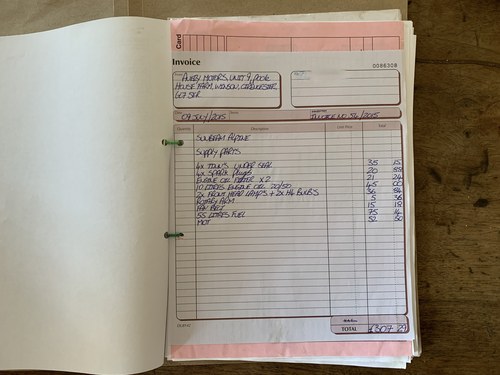 Card
Invoice
0086308
AVERY MOTORS, UNIT 9, POOLE
HOUSE FARM, WINSON, CIRENCESTER
GL7 5ER
09 JULY/2015
INVOICE NO 56/2015
Quantity Description Unit Price Total
SUNBEAM ALPINE
SUPPLY PARTS
4x TINS UNDER SEAL 35
4x SPARK PLUGS 20
ENGINE OIL FILTER x 2 21 24
10 LITRES ENGINE OIL 20/50 45 00
2x FRONT HEAD LAMPS + 2x H4 BULBS 36
ROTARY ARM 5 36
FAN BELT 15 18
55 LITRES FUEL 75
MOT 50
TOTAL £307